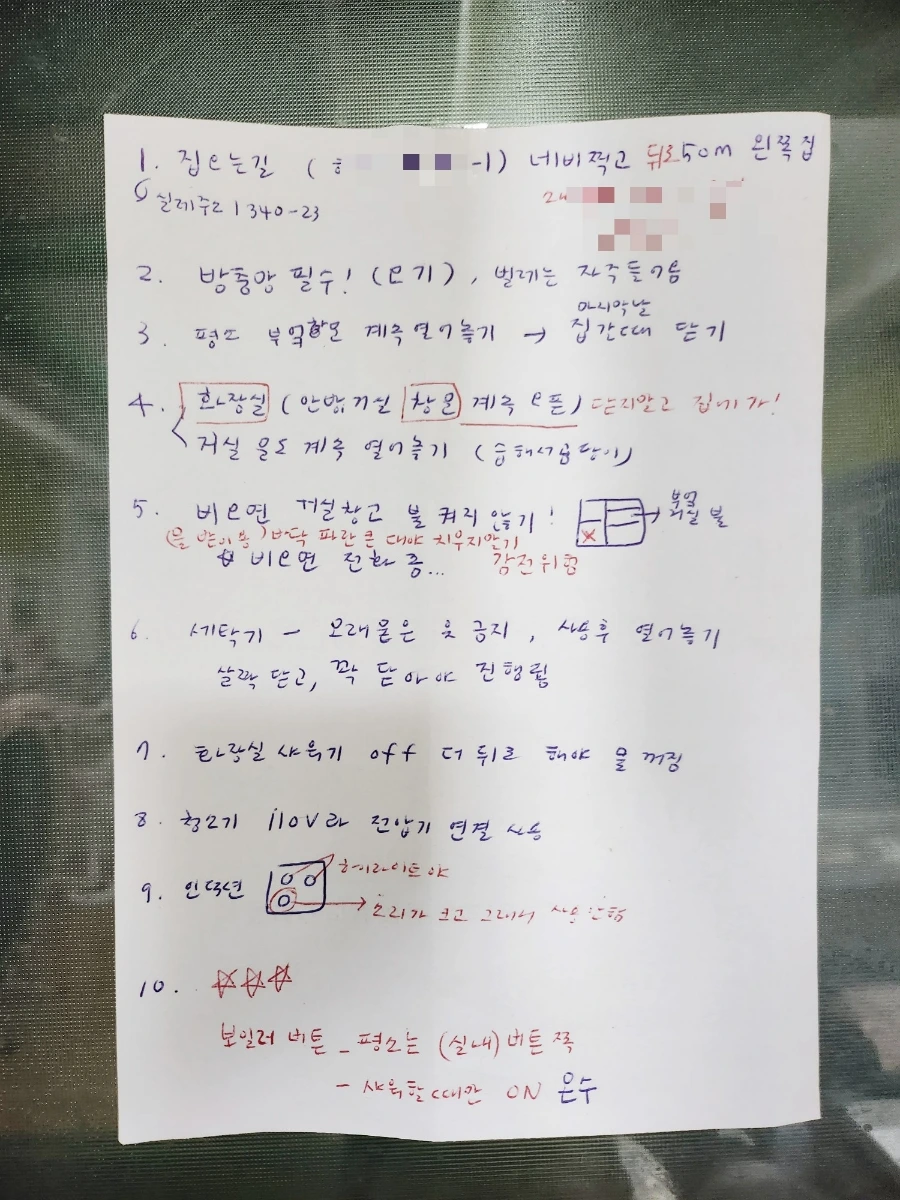 1. 집오는길 ( -1) 네비찍고 뒤로50m 왼쪽집
실레주로1340-23
2. 방충망 필수! (모기), 벌레는 자주들어옴
마지막날
3. 평소 부엌창문 계속열어놓기 → 집갈때 닫기
4. 화장실 (안방,거실 창문 계속 오픈) 닫지말고 집에가!
거실 문도 계속 열어놓기 (습해서곰팡이)
5. 비오면 거실창고 불 켜지 않기!
부엌
거실 불
(물 받이용)바닥 파란 큰 대야 치우지않기
비오면 전화 중... 감전위험
6. 세탁기 - 오래묻은 옷 금지, 사용후 열어놓기
살짝 닫고, 꽉 닫아야 진행됨
7. 화장실 샤워기 off 더 뒤로 해야 물 꺼짐
8. 청소기 110V라 전압기 연결 사용
9. 인덕션 하이라이트야
소리가 크고 그래서 사용
10. ☆☆☆
보일러 버튼 - 평소는 (실내) 버튼 쪽
- 샤워할때만 ON 온수